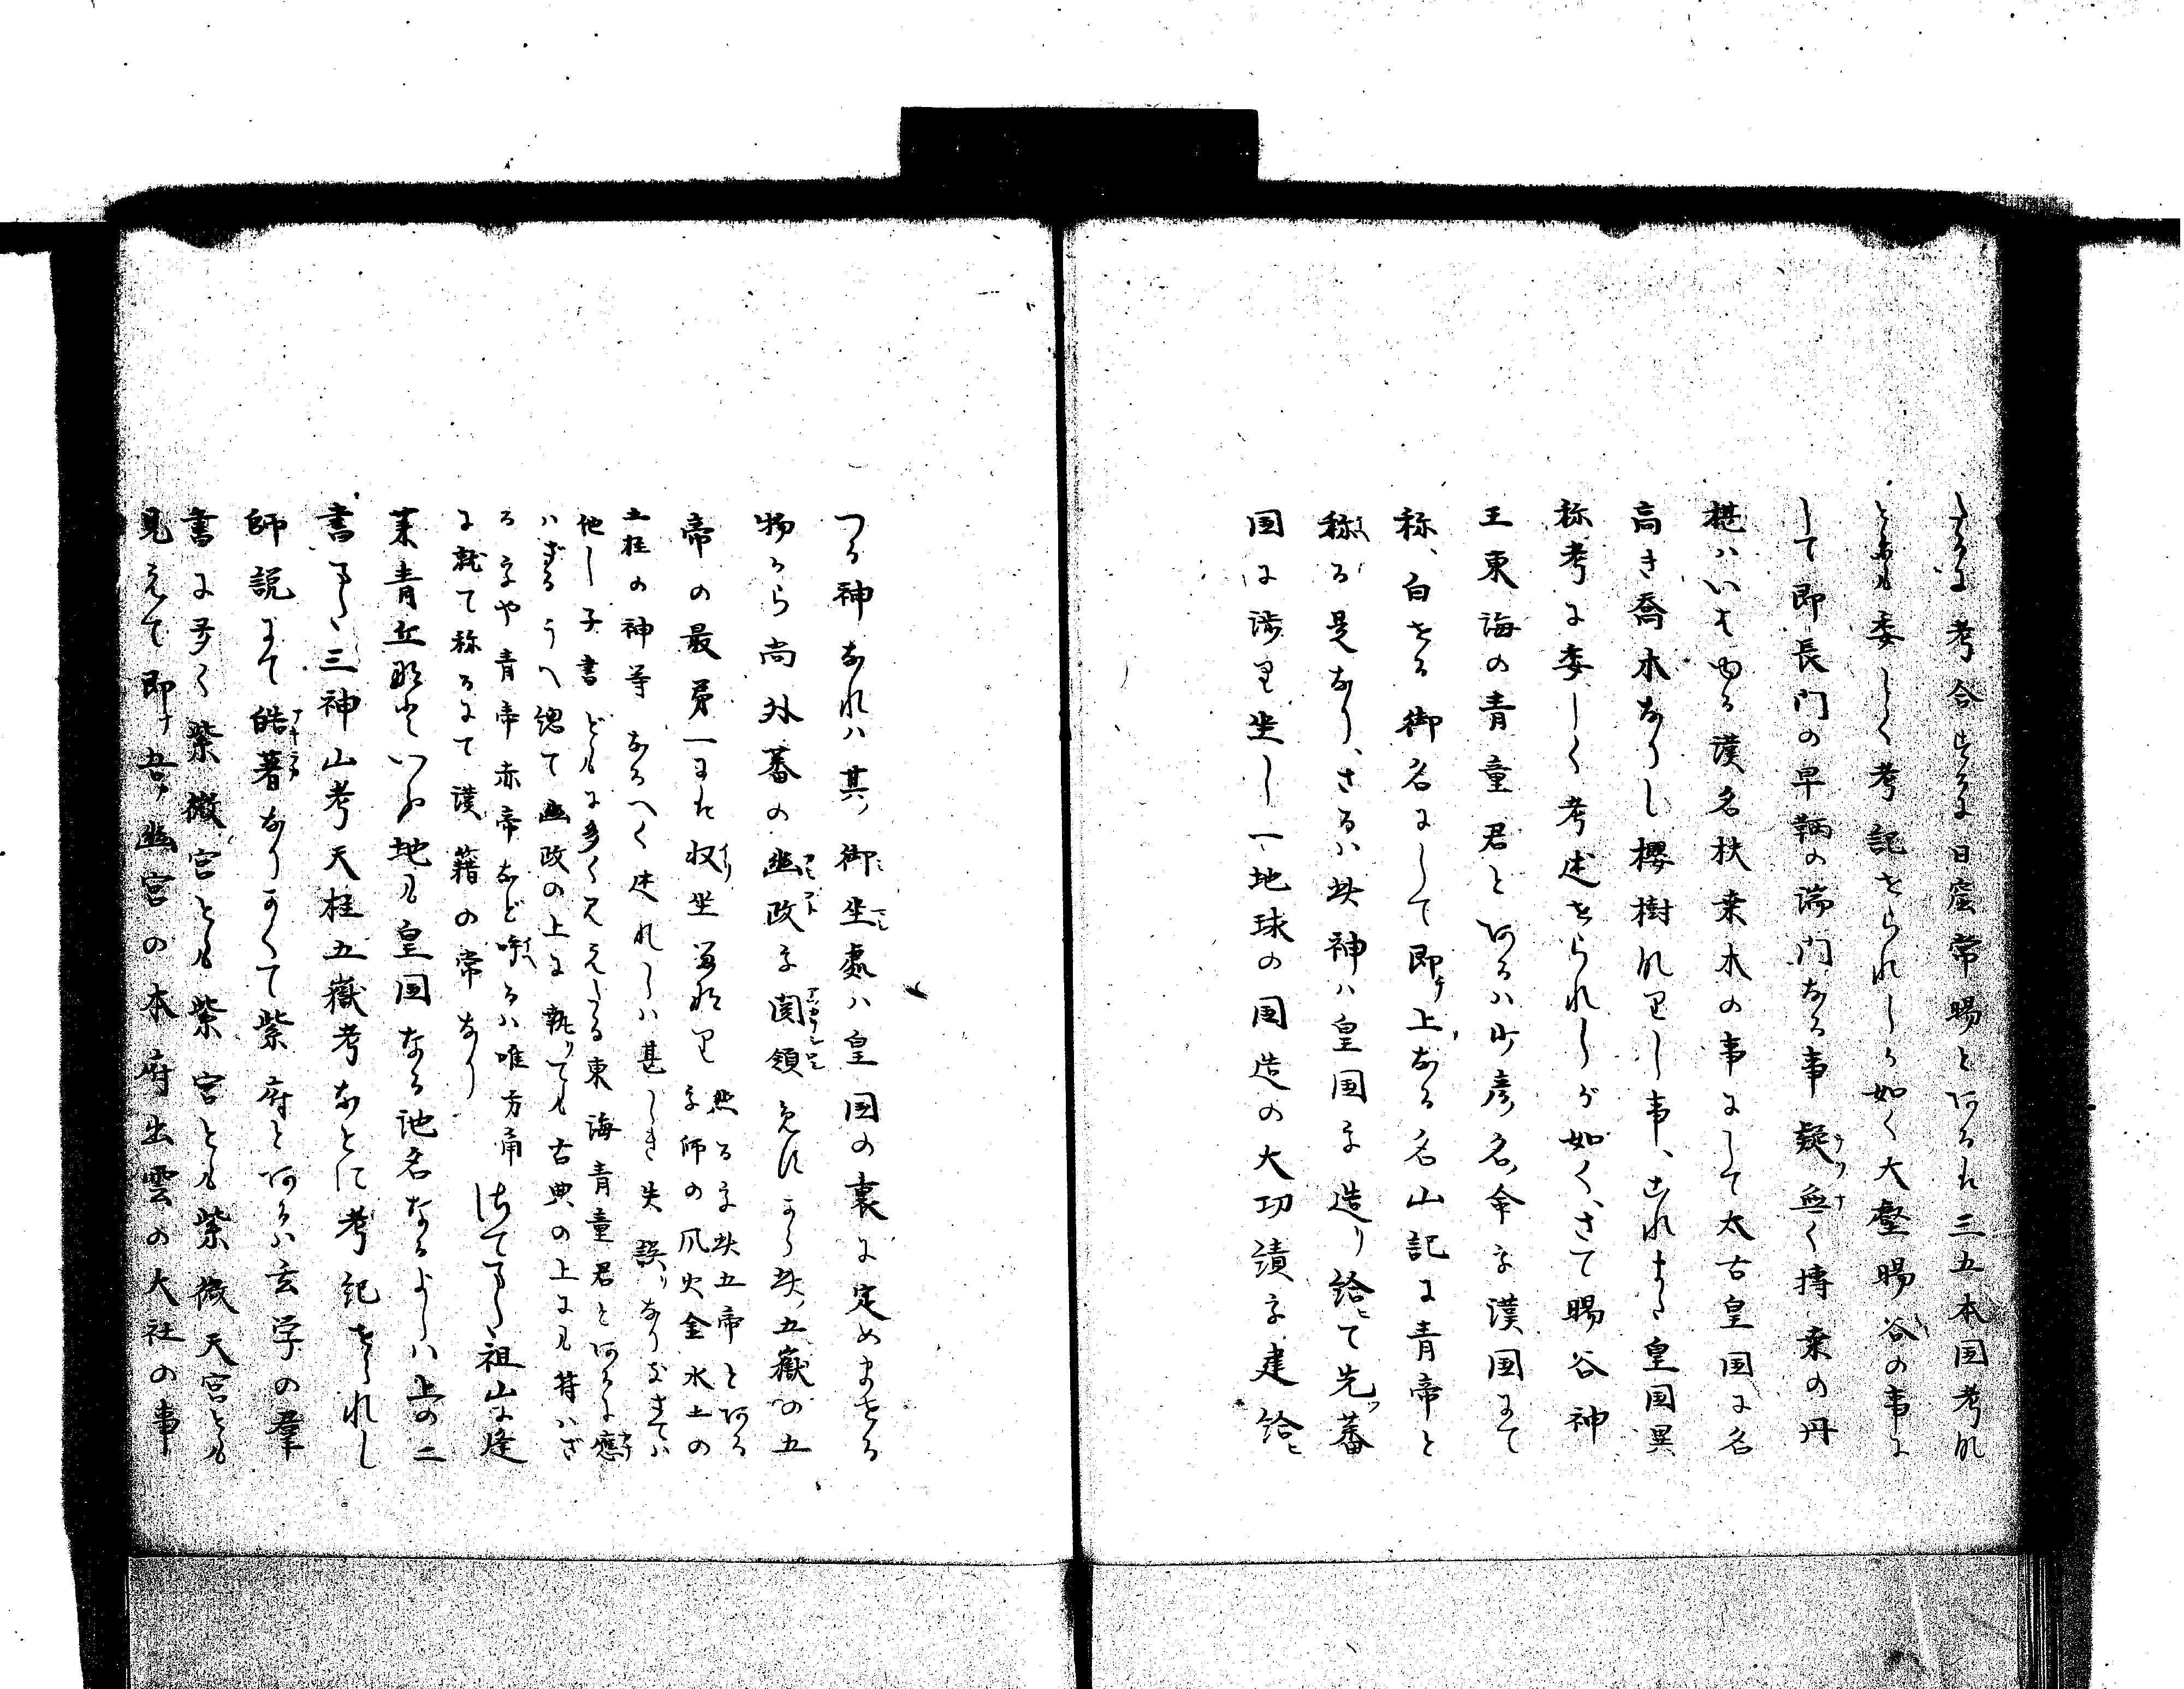 したるに考合するに日窟常暘とあるは三五本国考に
ともに委しく考記せられしか如く大壑暘谷の事に
して即長門の早鞆の端門なる事疑無く搏桒の丹
椹ハいはゆる漢名扶桒木の事にして太古皇国に名
高き喬木なりし櫻樹にてし事、これまた皇国異
称考に委しく考述せられしが如く、さて暘谷神
王東海の青童君とあるハ少彦名命を漢国にて
称、白せる御名にして即上なる名山記に青帝と
称る是なり、さるハ此神ハ皇国を造り給て先ッ蕃
国に渉り坐し一地球の国造の大功績を建給ヒ
つる神なれハ其御坐處ハ皇国の裏に定めませる
物から尚外蕃の幽政を関領 此五嶽の五
帝の最第一には収坐
然るを此五帝とある
を師の風火金水土の
五柱の神等なるへく述れしハ甚しき失誤りなり
他し子書どもに多く見えたる東海青童君とあるに應
ハざるうへ総て幽政の上に執りても古典の上にも符ハざ
るをや青帝赤帝など呼るハ唯方角
に就て称るにて漢籍の常なり
さてまた祖山に逢
莱青丘などいふ地も皇国なる地名なるよしハ上の二
書また三神山考天柱五嶽考なとに考記せられし
師説にて皓著なりかくて紫府とあるハ玄学の群
書に多く紫微宮とも紫宮とも紫微天宮とも
見えて即チ吾カ幽宮の本府出雲の大社の事